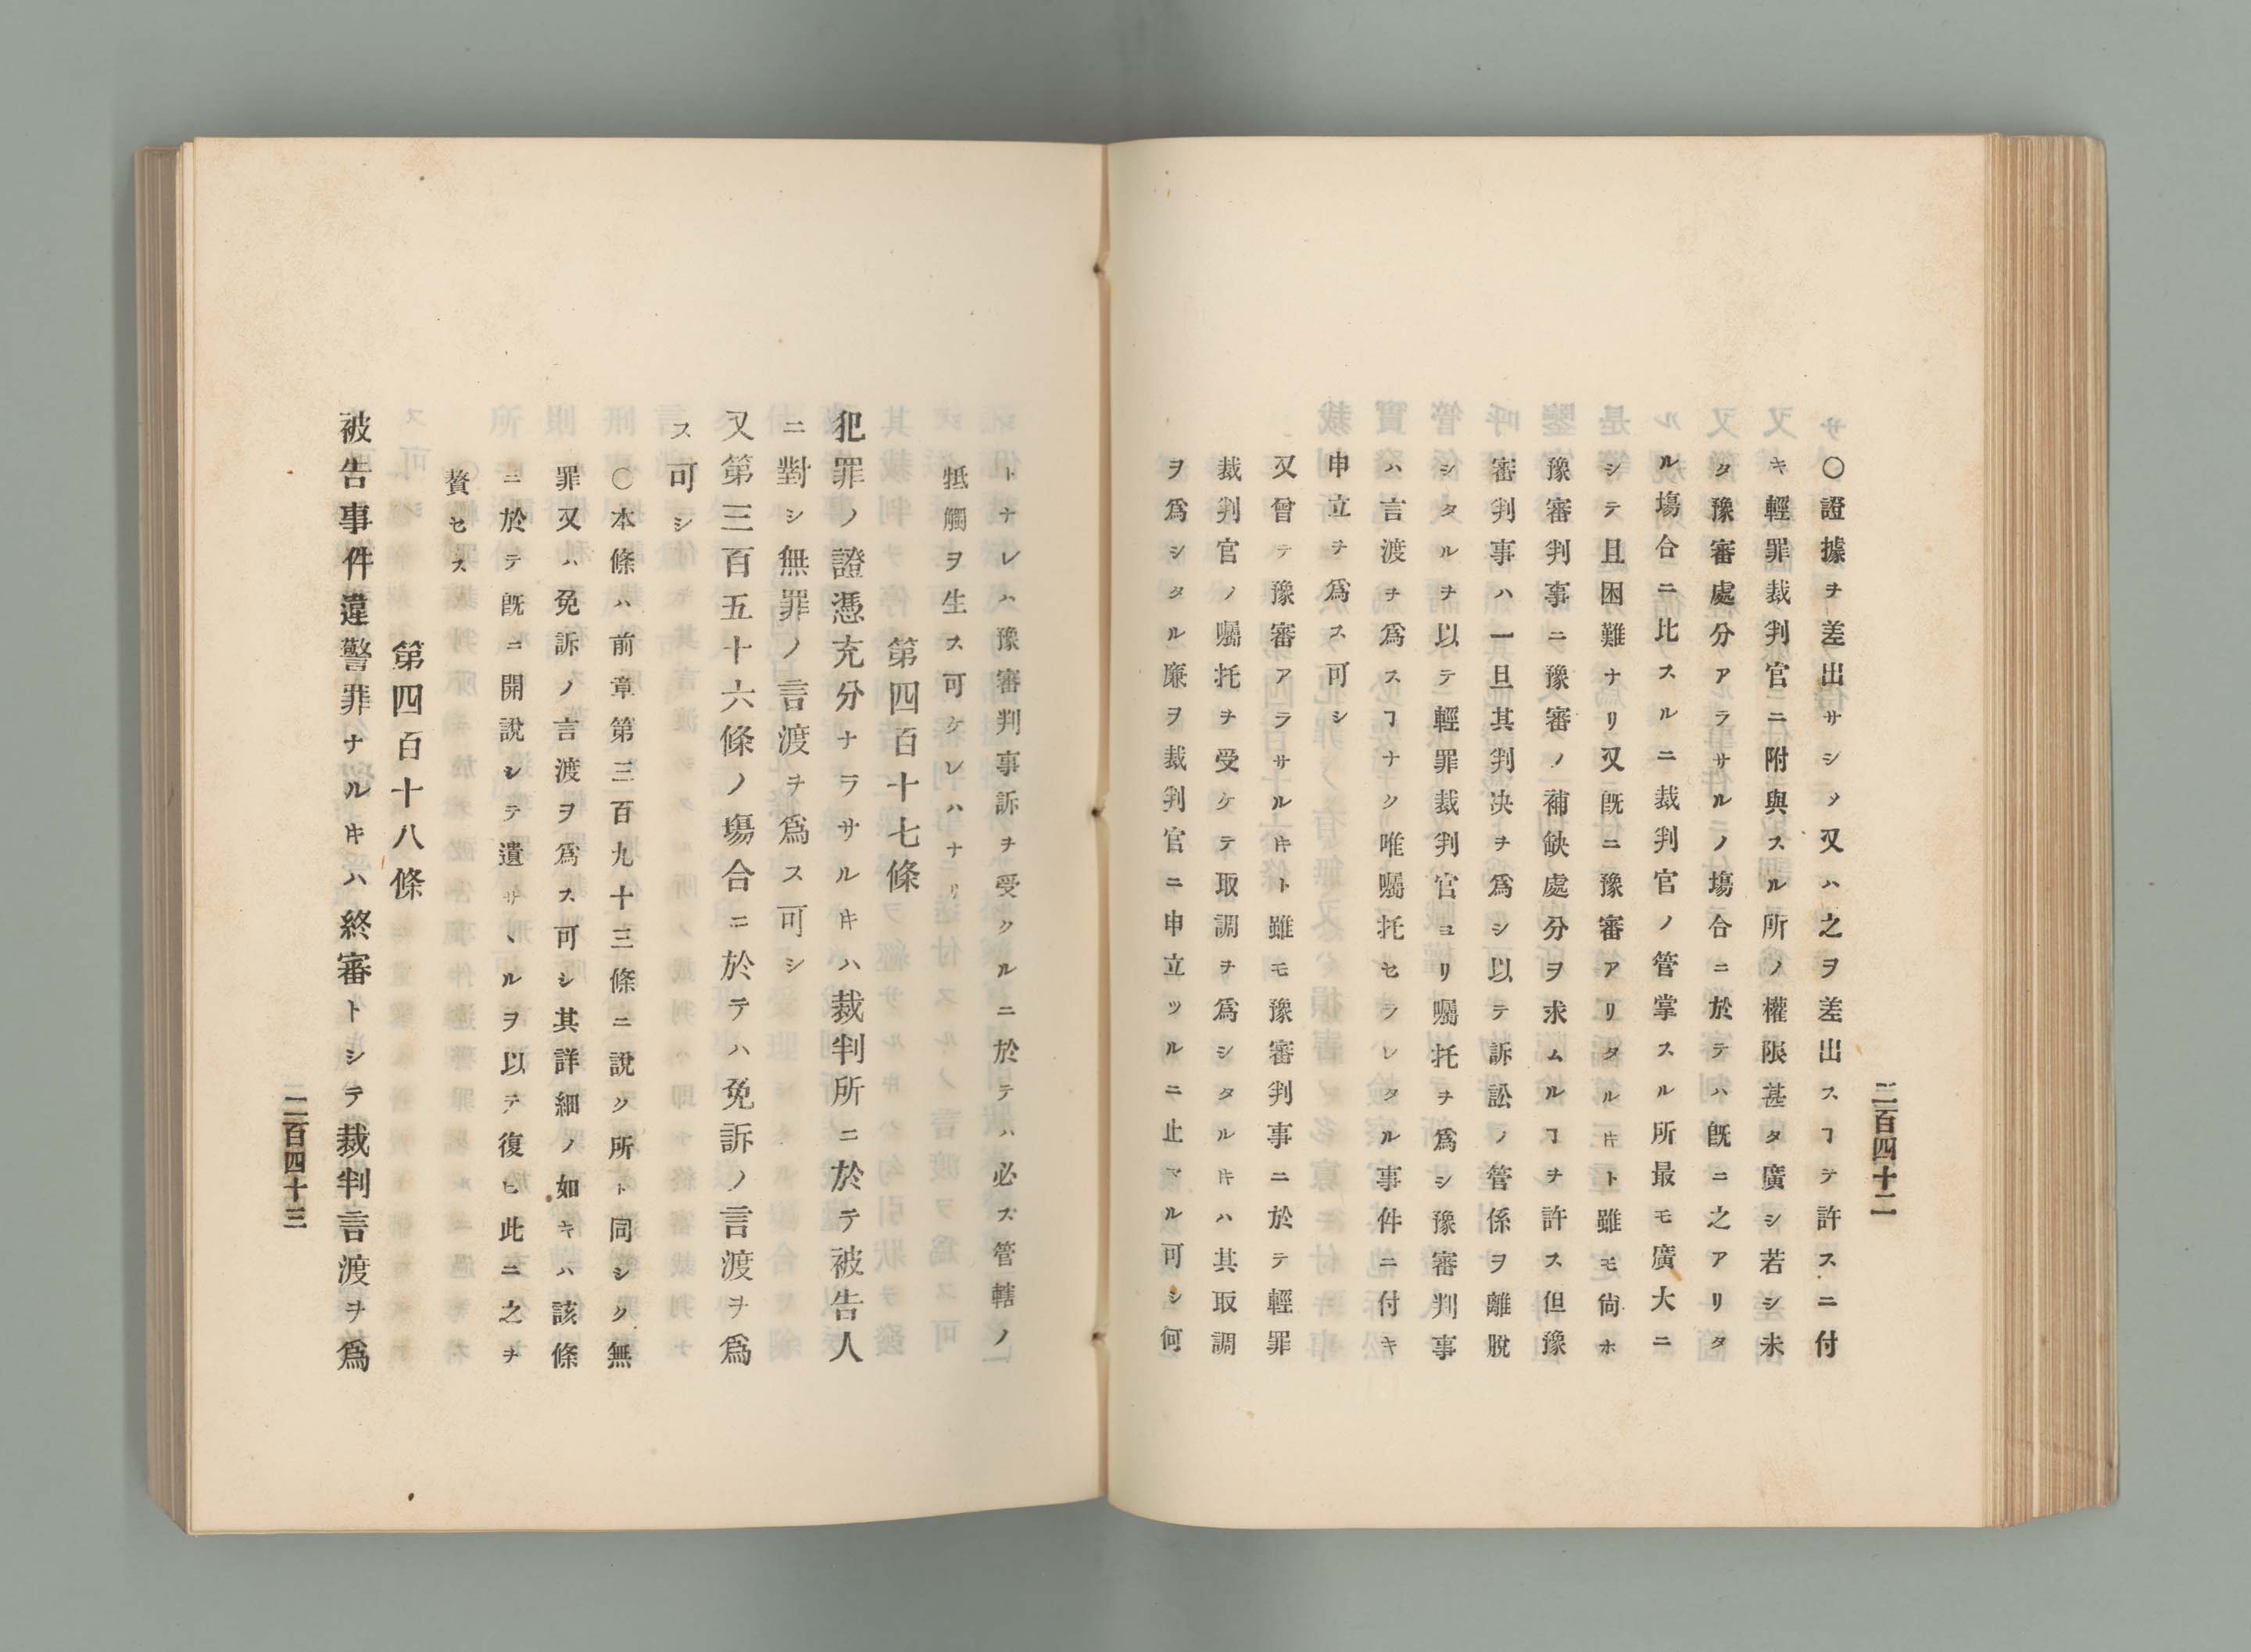 二百四十二
〇證據ヲ差出サシメ又ハ之ヲ差出スヿヲ許スニ付
キ輕罪裁判官ニ附與スル所ノ權限甚タ廣シ若シ未
タ豫審處分アラサルノ塲合ニ於テハ既ニ之アリタ
ル塲合ニ比スルニ裁判官ノ管掌スル所最モ廣大ニ
シテ且困難ナリ又既ニ豫審アリタルキト雖モ尙ホ
豫審判事ニ豫審ノ補缺處分ヲ求ムルヿヲ許ス但豫
審判事ハ一旦其判决ヲ爲シ以テ訴訟ノ管係ヲ離脫
シタルヲ以テ輕罪裁判官ヨリ囑托ヲ爲シ豫審判事
ハ言渡ヲ爲スヿナク唯囑托セラレタル事件ニ付キ
申立ヲ爲ス可シ
又曾テ豫審アラサルキト雖モ豫審判事ニ於テ輕罪
裁判官ノ囑托ヲ受ケテ取調ヲ爲シタルキハ其取調
ヲ爲シタル廉ヲ裁判官ニ申立ツルニ止マル可シ何
トナレハ豫審判事訴ヲ受クルニ於テハ必ス管轄ノ
牴觸ヲ生ス可ケレハナリ
第四百十七條
犯罪ノ證憑充分ナラサルキハ裁判所ニ於テ被告人
ニ對シ無罪ノ言渡ヲ爲ス可シ
又第三百五十六條ノ塲合ニ於テハ免訴ノ言渡ヲ爲
ス可シ
〇本條ハ前章第三百九十三條ニ說ク所ト同シク無
罪又ハ免訴ノ言渡ヲ爲ス可シ其詳細ノ如キハ該條
ニ於テ既ニ開說シテ遺サヽルヲ以テ復ヒ此ニ之ヲ
贅セス
第四百十八條
被告事件違警罪ナルキハ終審トシテ裁判言渡ヲ爲
二百四十三